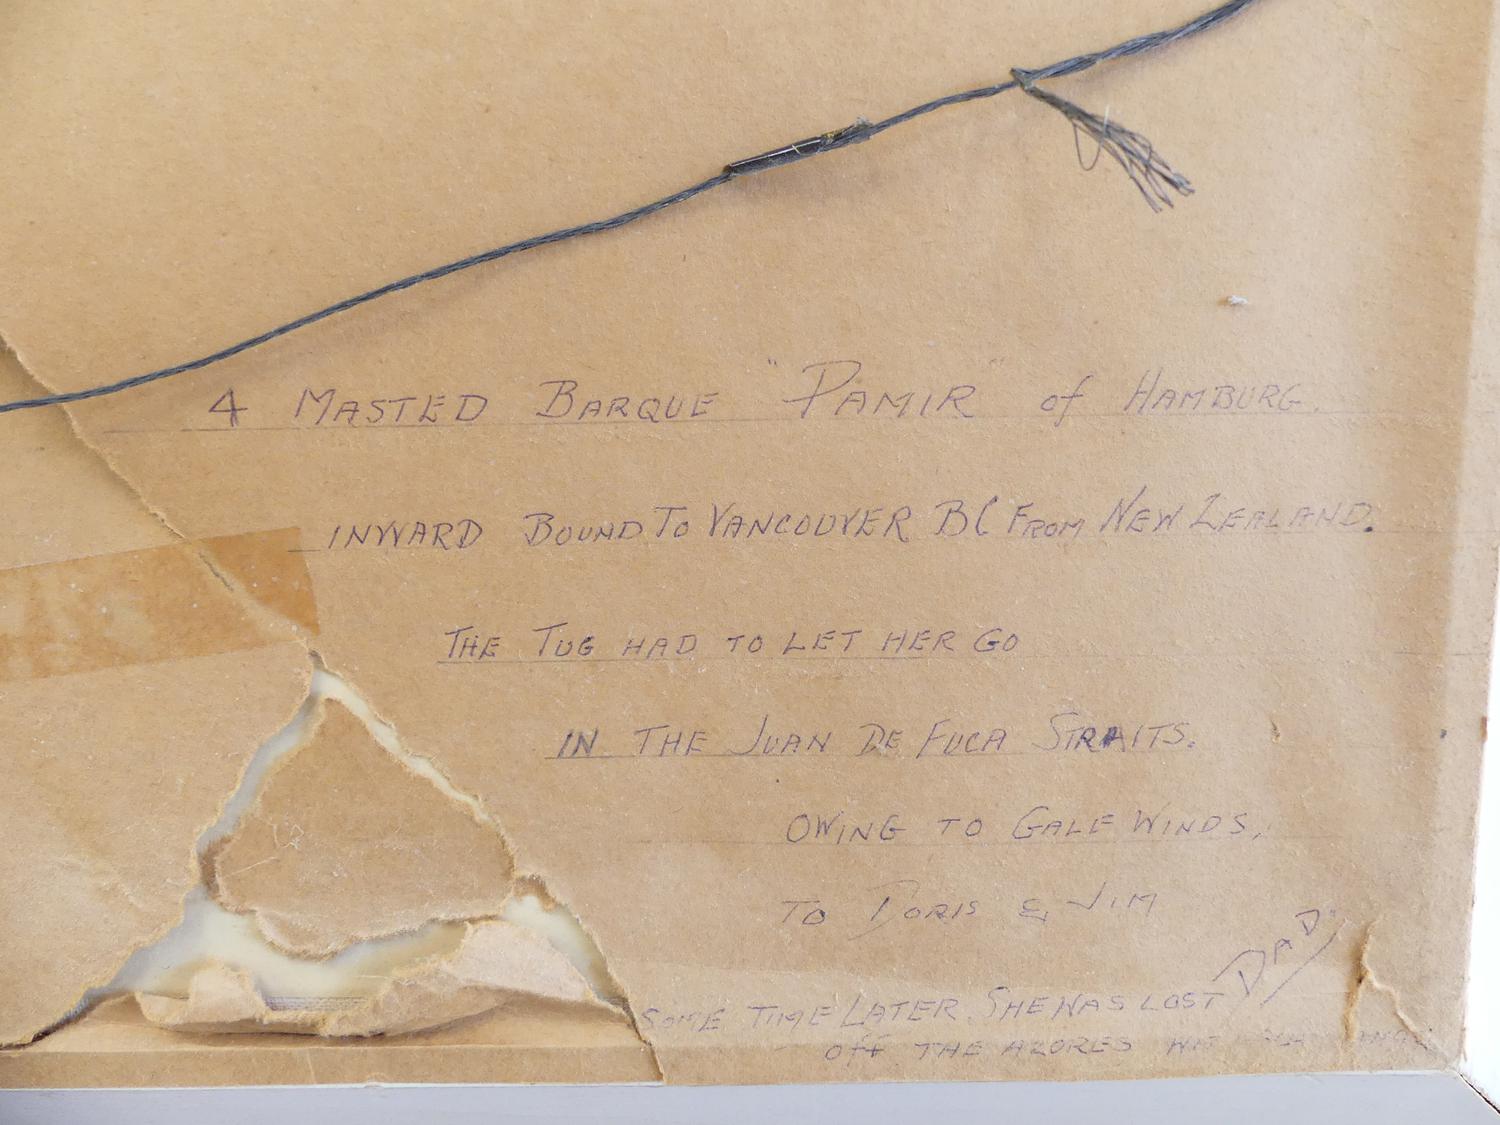 4 MASTED BARQUE "PAMIR" of HAMBURG.
INWARD BOUND TO VANCOUVER BC FROM NEW ZEALAND.
THE TUG HAD TO LET HER GO
IN THE JUAN DE FUCA STRAITS.
OWING TO GALE WINDS,
TO DORIS & JIM
DAD"
SOME TIME LATER. SHE WAS LOST
off THE AZORES